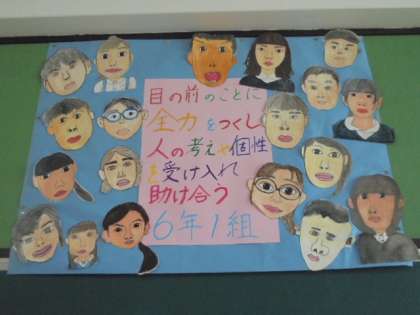 目の前のことに
全力をつくし
人の考えや個性
を受け入れ
助け合う
6年1組